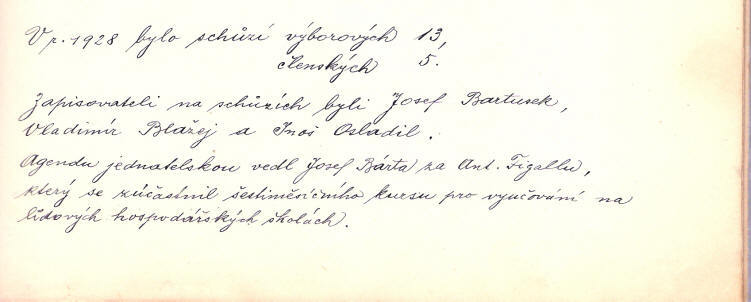 V r. 1928 bylo schůzí výborových 13,
členských 5.
Zapisovateli na schůzích byli Josef Bartusek,
Vladimír Blažej a Inoš Osladil.
Agendu jednatelskou vedl Josef Bárta za Ant. Figallu,
který se zúčastnil šestiměsíčního kursu pro vyučování na
lidových hospodářských školách.